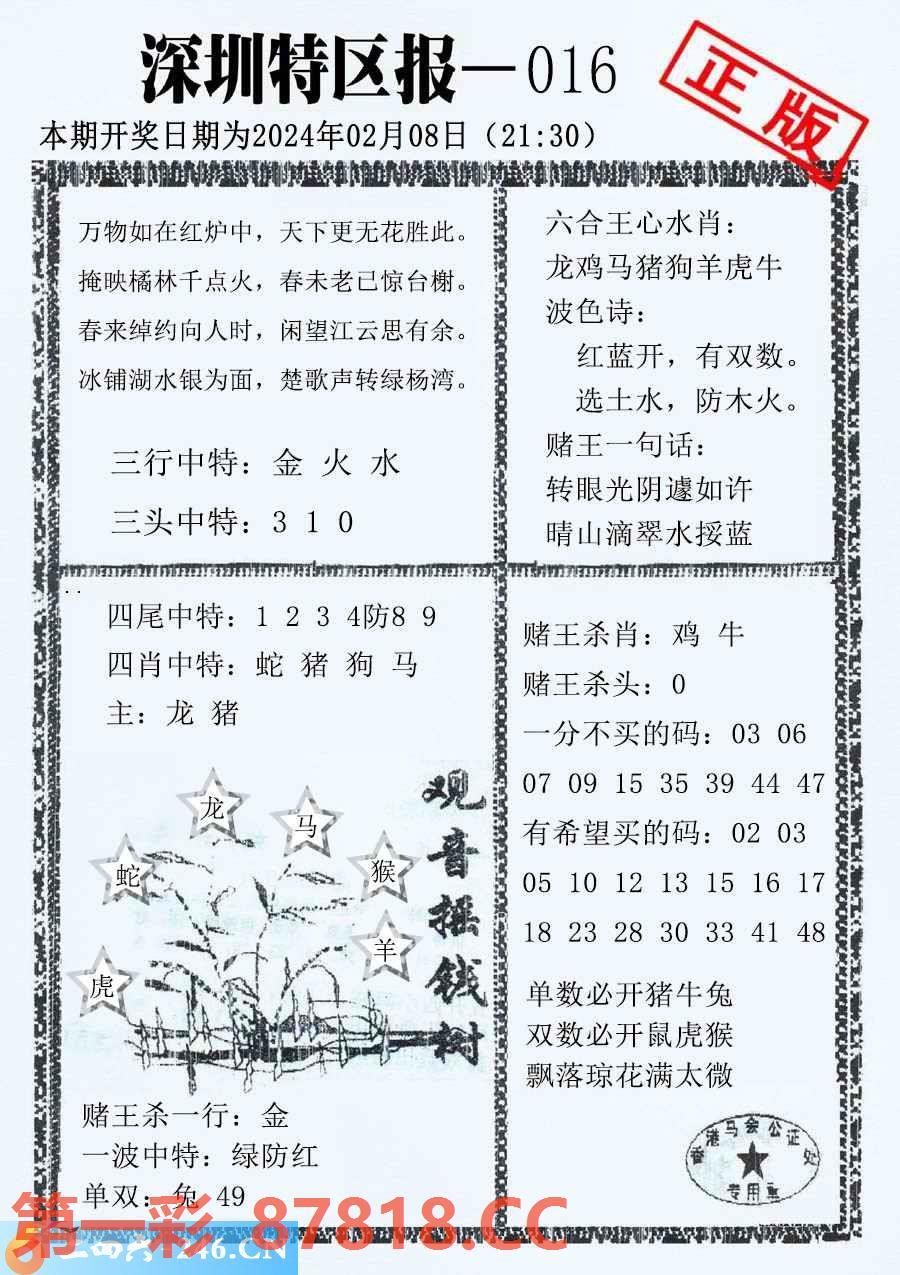 深圳特区报—016
正版
本期开奖日期为2024年02月08日（21:30）
万物如在红炉中，天下更无花胜此。
掩映橘林千点火，春未老已惊台榭。
春来绰约向人时，闲望江云思有余。
冰铺湖水银为面，楚歌声转绿杨湾。
三行中特：金 火 水
三头中特：3 1 0
六合王心水肖：
龙鸡马猪狗羊虎牛
波色诗：
红蓝开，有双数。
选土水，防木火。
赌王一句话：
转眼光阴遽如许
晴山滴翠水挼蓝
四尾中特：1 2 3 4防8 9
四肖中特：蛇 猪 狗 马
主：龙 猪
龙
马
蛇
猴
羊
虎
观音摇钱树
赌王杀一行：金
一波中特：绿防红
单双：兔 49
赌王杀肖：鸡 牛
赌王杀头：0
一分不买的码：03 06
07 09 15 35 39 44 47
有希望买的码：02 03
05 10 12 13 15 16 17
18 23 28 30 33 41 48
单数必开猪牛兔
双数必开鼠虎猴
飘落琼花满太微
香港马会公证处
专用章
第一彩 87818.CC
246.CN